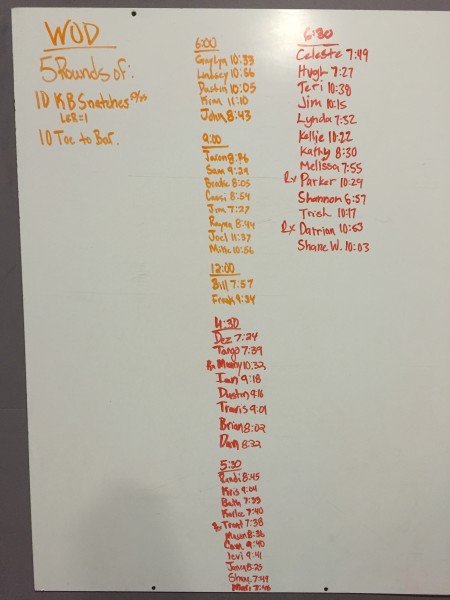 WOD
5 Rounds of:
10 KB Snatches
L&R=1
10 Toe to Bar.
6:00
Gaylyn 10:33
Lindsey 10:56
Dustin 10:05
Kim 11:10
John 8:43
9:00
Jason 8:76
Sam 9:29
Brooke 8:05
Cassi 8:54
Jim 7:27
Rayna 8:44
Joel 11:37
Mike 10:56
12:00
Bill 7:57
Frank 9:34
4:30
Dez 7:24
Tanya 7:39
Rx Manny 10:32
Ian 9:18
Dustin 9:16
Travis 9:01
Brian 8:02
Dan 8:22
5:30
Randi 8:45
Kris 9:04
Beth 7:33
Karlee 7:40
Rx Trent 7:38
8:36
9:40
Levi 9:41
8:25
Shane 7:49
7:48
6:30
Celeste 7:49
Hugh 7:27
Teri 10:38
Jim 10:15
Lynda 7:52
Kellie 10:22
Kathy 8:30
Melissa 7:55
Rx Parker 10:29
Shannon 6:57
Trish 10:17
Rx Darrian 10:53
Shane W. 10:03